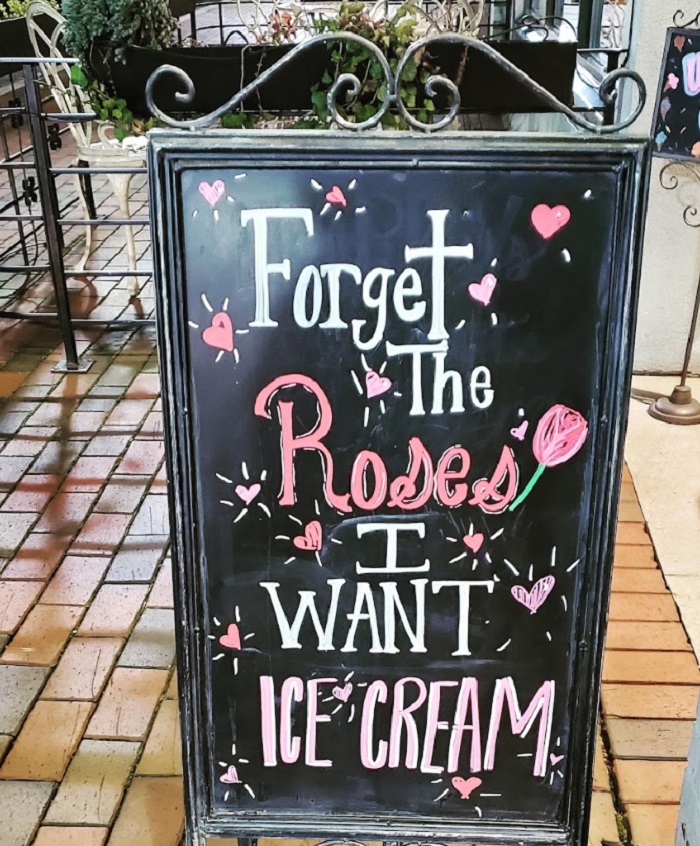 Forget
The
Roses
I
WANT
ICE CREAM